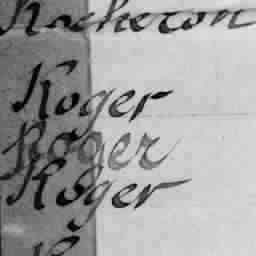 Rocheron
Roger
Roger
Roger